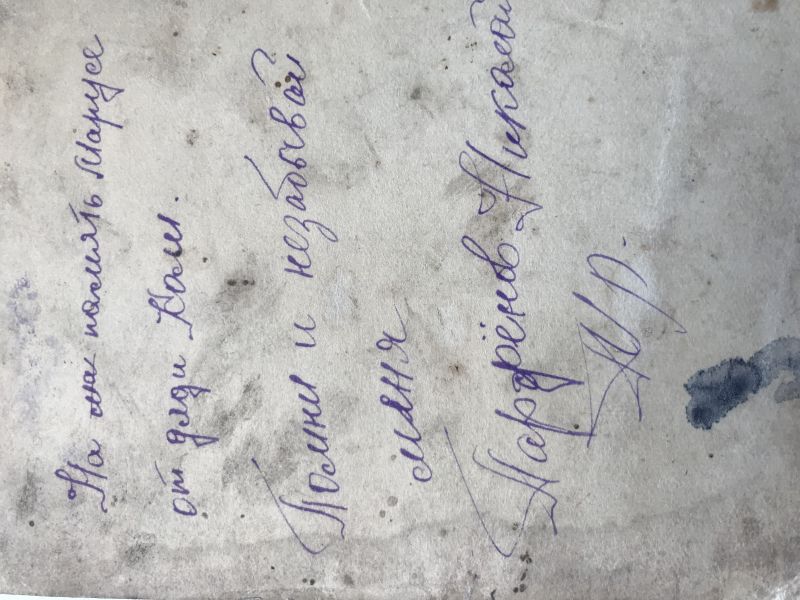 На на память Марусе
от дяди Коли.
Помни и незабывай
меня
Парфёнов Николай